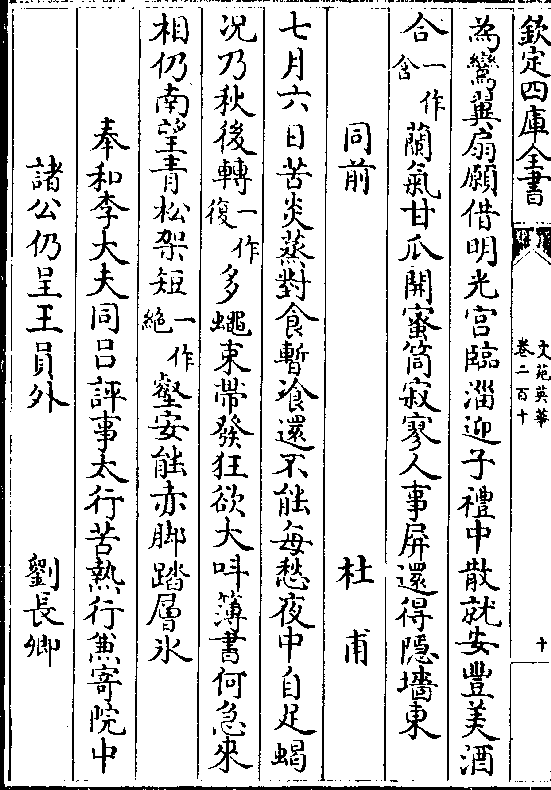 欽定四庫全書
文苑英華
卷二百十
十
為鸞翼扇願借明光宮臨淄迎子禮中散就安豐美酒
合一作含蘭氣甘瓜開蜜筒寂寥人事屏還得隱墻東
同前 杜甫
七月六日苦炎蒸對食暫飡還不能每愁夜中自足蝎
況乃秋後轉一作復多蠅束帶發狂欲大呌簿書何急來
相仍南望青松架短一作絶壑安能赤脚踏層氷
奉和李大夫同吕評事太行苦熱行兼寄院中
諸公仍呈王員外 劉長卿